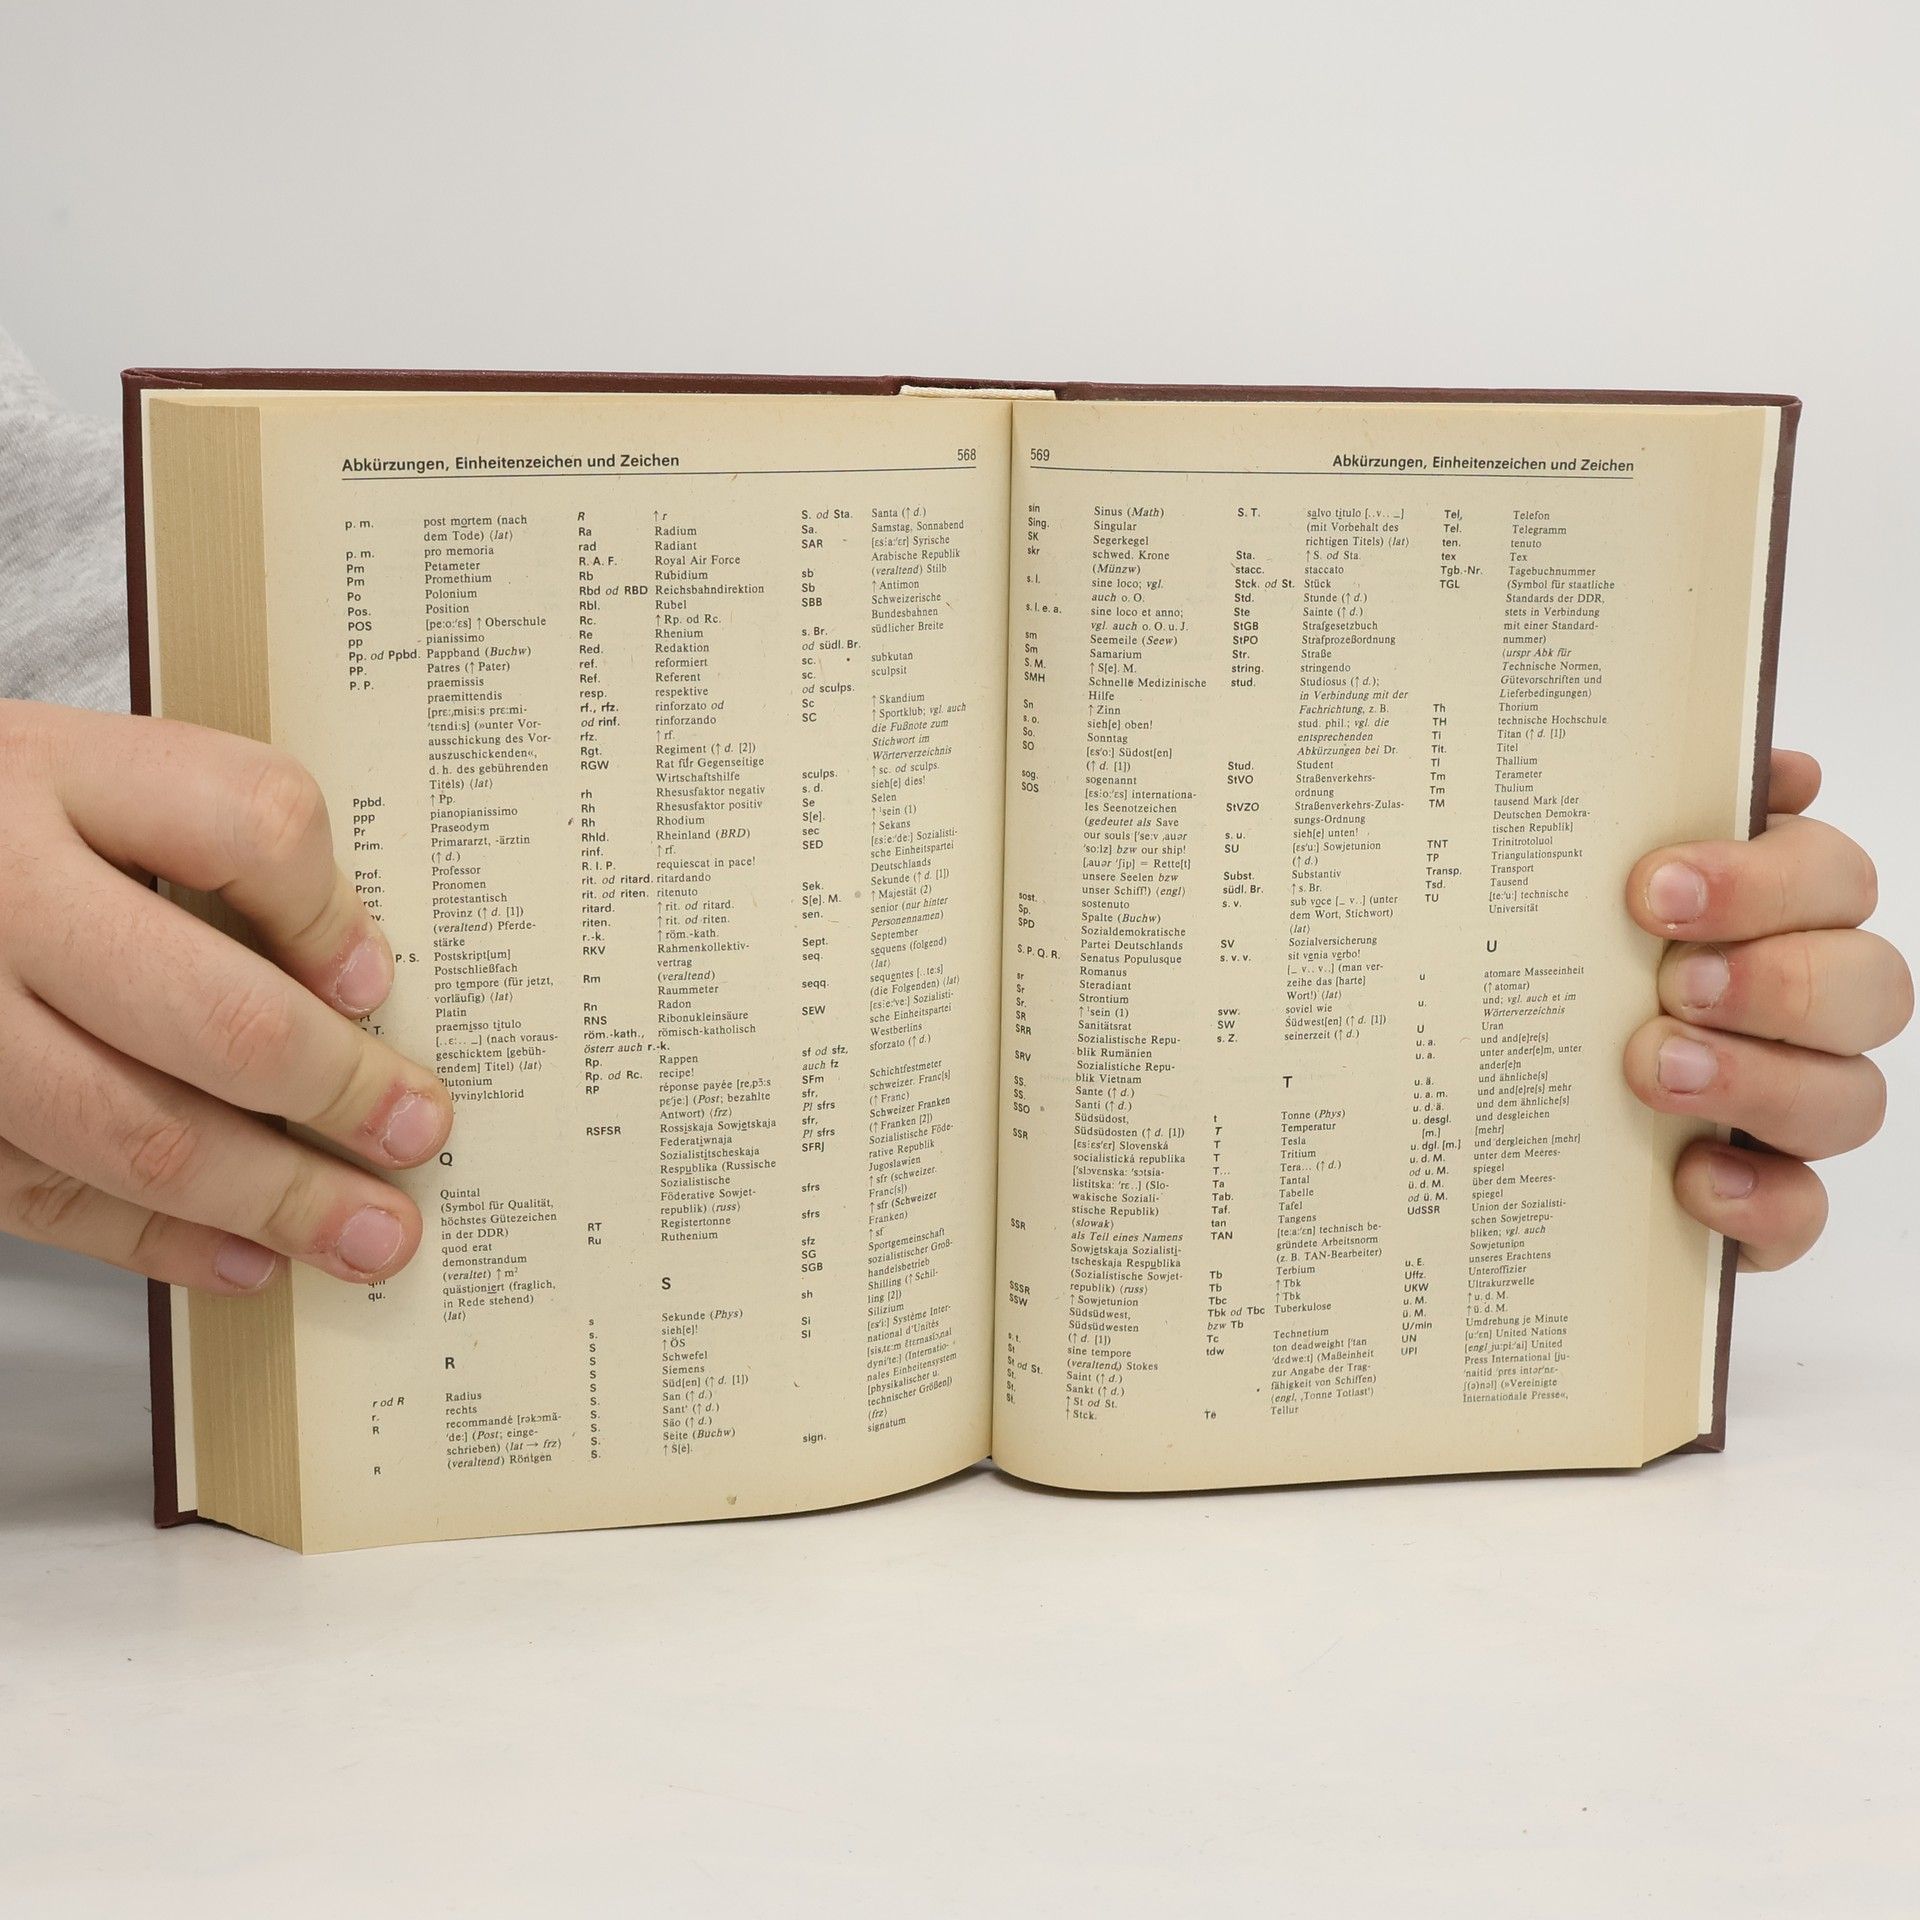 Abkürzungen, Einheitenzeichen und Zeichen 568
p. m. post mortem (nach
dem Tode) ⟨lat⟩
p. m. pro memoria
Pm Petameter
Pm Promethium
Po Polonium
Pos. Position
POS [pe:o:'ɛs] ↑ Oberschule
pp pianissimo
Pp. od Ppbd. Pappband (Buchw)
PP. Patres (↑ Pater)
P. P. praemissis
praemittendis
[prɛ:ˌmisi:s prɛ:mi-
'tɛndi:s] (»unter Vor-
ausschickung des Vor-
auszuschickenden«,
d. h. des gebührenden
Titels) ⟨lat⟩
Ppbd. ↑ Pp.
ppp pianopianissimo
Pr Praseodym
Prim. Primararzt, -ärztin
(↑ d.)
Prof. Professor
Pron. Pronomen
protestantisch
Provinz (↑ d. [1])
(veraltend) Pferde-
stärke
P. S. Postskript[um]
Postschließfach
pro tempore (für jetzt,
vorläufig) ⟨lat⟩
Platin
praemisso titulo
[..ɛ:.. _] (nach voraus-
geschicktem [gebüh-
rendem] Titel) ⟨lat⟩
Q
Quintal
(Symbol für Qualität,
höchstes Gütezeichen
in der DDR)
quod erat
demonstrandum
(veraltet) ↑ m²
qu. quästioniert (fraglich,
in Rede stehend)
⟨lat⟩
R
r od R Radius
r. rechts
R recommandé [rəkɔmã-
'de:] (Post; einge-
schrieben) ⟨lat → frz⟩
R (veraltend) Röntgen
R ↑ r
Ra Radium
rad Radiant
R. A. F. Royal Air Force
Rb Rubidium
Rbd od RBD Reichsbahndirektion
Rbl. Rubel
Rc. ↑ Rp. od Rc.
Re Rhenium
Red. Redaktion
ref. reformiert
Ref. Referent
resp. respektive
rf., rfz. rinforzato od
od rinf. rinforzando
rfz. ↑ rf.
Rgt. Regiment (↑ d. [2])
RGW Rat für Gegenseitige
Wirtschaftshilfe
rh Rhesusfaktor negativ
Rh Rhesusfaktor positiv
Rh Rhodium
Rhld. Rheinland (BRD)
rinf. ↑ rf.
R. I. P. requiescat in pace!
rit. od ritard. ritardando
rit. od riten. ritenuto
ritard. ↑ rit. od ritard.
riten. ↑ rit. od riten.
r.-k. ↑ röm.-kath.
RKV Rahmenkollektiv-
vertrag
Rm (veraltend)
Raummeter
Rn Radon
RNS Ribonukleinsäure
röm.-kath., römisch-katholisch
österr auch r.-k.
Rp. Rappen
Rp. od Rc. recipe!
RP réponse payée [re.pɔ̃:s
pɛ'je:] (Post; bezahlte
Antwort) ⟨frz⟩
RSFSR Rossiskaja Sowjetskaja
Federatiwnaja
Sozialistitscheskaja
Respublika (Russische
Sozialistische
Föderative Sowjet-
republik) ⟨russ⟩
RT Registertonne
Ru Ruthenium
S
s Sekunde (Phys)
s. sieh[e]!
S ↑ ÖS
S Schwefel
S Siemens
S Süd[en] (↑ d. [1])
S. San (↑ d.)
S. Sant' (↑ d.)
S. São (↑ d.)
S. Seite (Buchw)
S. ↑ S[e].
S. od Sta. Santa (↑ d.)
Sa. Samstag, Sonnabend
SAR [ɛs:a:'ɛr] Syrische
Arabische Republik
sb (veraltend) Stilb
Sb ↑ Antimon
SBB Schweizerische
Bundesbahnen
s. Br. südlicher Breite
od südl. Br.
sc. subkutan
sc. sculpsit
od sculps.
Sc ↑ Skandium
SC ↑ Sportklub; vgl. auch
die Fußnote zum
Stichwort im
Wörterverzeichnis
sculps. ↑ sc. od sculps.
s. d. sieh[e] dies!
Se Selen
S[e]. ↑ ¹sein (1)
sec ↑ Sekans
SED [ɛs:e:'de:] Sozialisti-
sche Einheitspartei
Deutschlands
Sek. Sekunde (↑ d. [1])
S[e]. M. ↑ Majestät (2)
sen. senior (nur hinter
Personennamen)
Sept. September
seq. sequens (folgend)
⟨lat⟩
seqq. sequentes [..te:s]
(die Folgenden) ⟨lat⟩
SEW [ɛs:e:'ve:] Sozialisti-
sche Einheitspartei
Westberlins
sf od sfz, sforzato (↑ d.)
auch fz
SFm Schichtfestmeter
sfr, schweizer. Franc[s]
Pl sfrs (↑ Franc)
sfr, Schweizer Franken
Pl sfrs (↑ Franken [2])
SFRJ Sozialistische Föde-
rative Republik
Jugoslawien
sfrs ↑ sfr (schweizer.
Franc[s])
sfrs ↑ sfr (Schweizer
Franken)
sfz ↑ sf
SG Sportgemeinschaft
SGB sozialistischer Groß-
handelsbetrieb
sh Shilling (↑ Schil-
ling [2])
Si Silizium
SI [ɛs'i:] Système Inter-
national d'Unités
(Internatio-
nales Einheitensystem
[physikalischer u.
technischer Größen])
⟨frz⟩
sign. signatum
569 Abkürzungen, Einheitenzeichen und Zeichen
sin Sinus (Math)
Sing. Singular
SK Segerkegel
skr schwed. Krone
(Münzw)
s. l. sine loco; vgl.
auch o. O.
s. l. e. a. sine loco et anno;
vgl. auch o. O. u. J.
sm Seemeile (Seew)
Sm Samarium
S. M. ↑ S[e]. M.
SMH Schnelle Medizinische
Hilfe
Sn ↑ Zinn
s. o. sieh[e] oben!
So. Sonntag
SO [ɛs'o:] Südost[en]
(↑ d. [1])
sog. sogenannt
SOS [ɛs:o:'ɛs] internationa-
les Seenotzeichen
(gedeutet als Save
our souls ['se:v ˌauər
'so:lz] bzw our ship!
[ˌauər 'ʃip] = Rette[t]
unsere Seelen bzw
unser Schiff!) ⟨engl⟩
sost. sostenuto
Sp. Spalte (Buchw)
SPD Sozialdemokratische
Partei Deutschlands
S. P. Q. R. Senatus Populusque
Romanus
sr Steradiant
Sr Strontium
Sr. ↑ ¹sein (1)
SR Sanitätsrat
SRR Sozialistische Repu-
blik Rumänien
SRV Sozialistische Repu-
blik Vietnam
SS. Sante (↑ d.)
SS. Santi (↑ d.)
SSO Südsüdost,
Südsüdosten (↑ d. [1])
SSR [ɛs:ɛs'ɛr] Slovenská
socialistická republika
['slɔvɛnska: 'sɔtsia-
listitska: 'rɛ..] (Slo-
wakische Soziali-
stische Republik)
⟨slowak⟩
SSR als Teil eines Namens
Sowjetskaja Sozialisti-
tscheskaja Respublika
(Sozialistische Sowjet-
republik) ⟨russ⟩
SSSR ↑ Sowjetunion
SSW Südsüdwest,
Südsüdwesten
(↑ d. [1])
s. t. sine tempore
St (veraltend) Stokes
St od St. Saint (↑ d.)
St. Sankt (↑ d.)
St. ↑ St od St.
St. ↑ Stck.
S. T. salvo titulo [..v.. _]
(mit Vorbehalt des
richtigen Titels) ⟨lat⟩
Sta. ↑ S. od Sta.
stacc. staccato
Stck. od St. Stück
Std. Stunde (↑ d.)
Ste Sainte (↑ d.)
StGB Strafgesetzbuch
StPO Strafprozeßordnung
Str. Straße
string. stringendo
stud. Studiosus (↑ d.);
in Verbindung mit der
Fachrichtung, z. B.
stud. phil.; vgl. die
entsprechenden
Abkürzungen bei Dr.
Stud. Student
StVO Straßenverkehrs-
ordnung
StVZO Straßenverkehrs-Zulas-
sungs-Ordnung
s. u. sieh[e] unten!
SU [ɛs'u:] Sowjetunion
(↑ d.)
Subst. Substantiv
südl. Br. ↑ s. Br.
s. v. sub voce [_ v..] (unter
dem Wort, Stichwort)
⟨lat⟩
SV Sozialversicherung
s. v. v. sit venia verbo!
[_ v.. v..] (man ver-
zeihe das [harte]
Wort!) ⟨lat⟩
svw. soviel wie
SW Südwest[en] (↑ d. [1])
s. Z. seinerzeit (↑ d.)
T
t Tonne (Phys)
T Temperatur
T Tesla
T Tritium
T... Tera... (↑ d.)
Ta Tantal
Tab. Tabelle
Taf. Tafel
tan Tangens
TAN [te:a:'ɛn] technisch be-
gründete Arbeitsnorm
(z. B. TAN-Bearbeiter)
Tb Terbium
Tb ↑ Tbk
Tbc ↑ Tbk
Tbk od Tbc Tuberkulose
bzw Tb
Tc Technetium
tdw ton deadweight ['tan
'dɛdwe:t] (Maßeinheit
zur Angabe der Trag-
fähigkeit von Schiffen)
⟨engl, ‚Tonne Totlast'⟩
Te Tellur
Tel. Telefon
Tel. Telegramm
ten. tenuto
tex Tex
Tgb.-Nr. Tagebuchnummer
TGL (Symbol für staatliche
Standards der DDR,
stets in Verbindung
mit einer Standard-
nummer)
(urspr Abk für
Technische Normen,
Gütevorschriften und
Lieferbedingungen)
Th Thorium
TH technische Hochschule
Ti Titan (↑ d. [1])
Tit. Titel
Tl Thallium
Tm Terameter
Tm Thulium
TM tausend Mark [der
Deutschen Demokra-
tischen Republik]
TNT Trinitrotoluol
TP Triangulationspunkt
Transp. Transport
Tsd. Tausend
TU [te:'u:] technische
Universität
U
u atomare Masseeinheit
(↑ atomar)
u. und; vgl. auch et im
Wörterverzeichnis
U Uran
u. a. und and[e]re[s]
u. a. unter ander[e]m, unter
ander[e]n
u. ä. und ähnliche[s]
u. a. m. und and[e]re[s] mehr
u. d. ä. und dem ähnliche[s]
u. desgl. und desgleichen
[m.] [mehr]
u. dgl. [m.] und dergleichen [mehr]
u. d. M. unter dem Meeres-
od u. M. spiegel
ü. d. M. über dem Meeres-
od ü. M. spiegel
UdSSR Union der Sozialisti-
schen Sowjetrepu-
bliken; vgl. auch
Sowjetunion
u. E. unseres Erachtens
Uffz. Unteroffizier
UKW Ultrakurzwelle
u. M. ↑ u. d. M.
ü. M. ↑ ü. d. M.
U/min Umdrehung je Minute
UN [u:'ɛn] United Nations
UPI [engl ju:pi:'ai] United
Press International [ju-
'naitid 'prɛs intər'nɛ-
ʃ(ə)nəl] (»Vereinigte
Internationale Presse«,